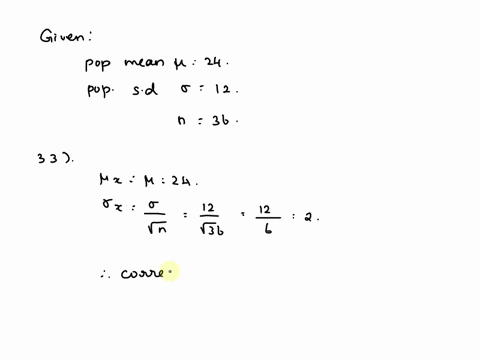 Given:
pop mean μ : 24.
pop. s.d σ = 12.
n = 36.
33).
μx = μ : 24.
σx : σ/√n = 12/√36 = 12/6 : 2.
∴ corre